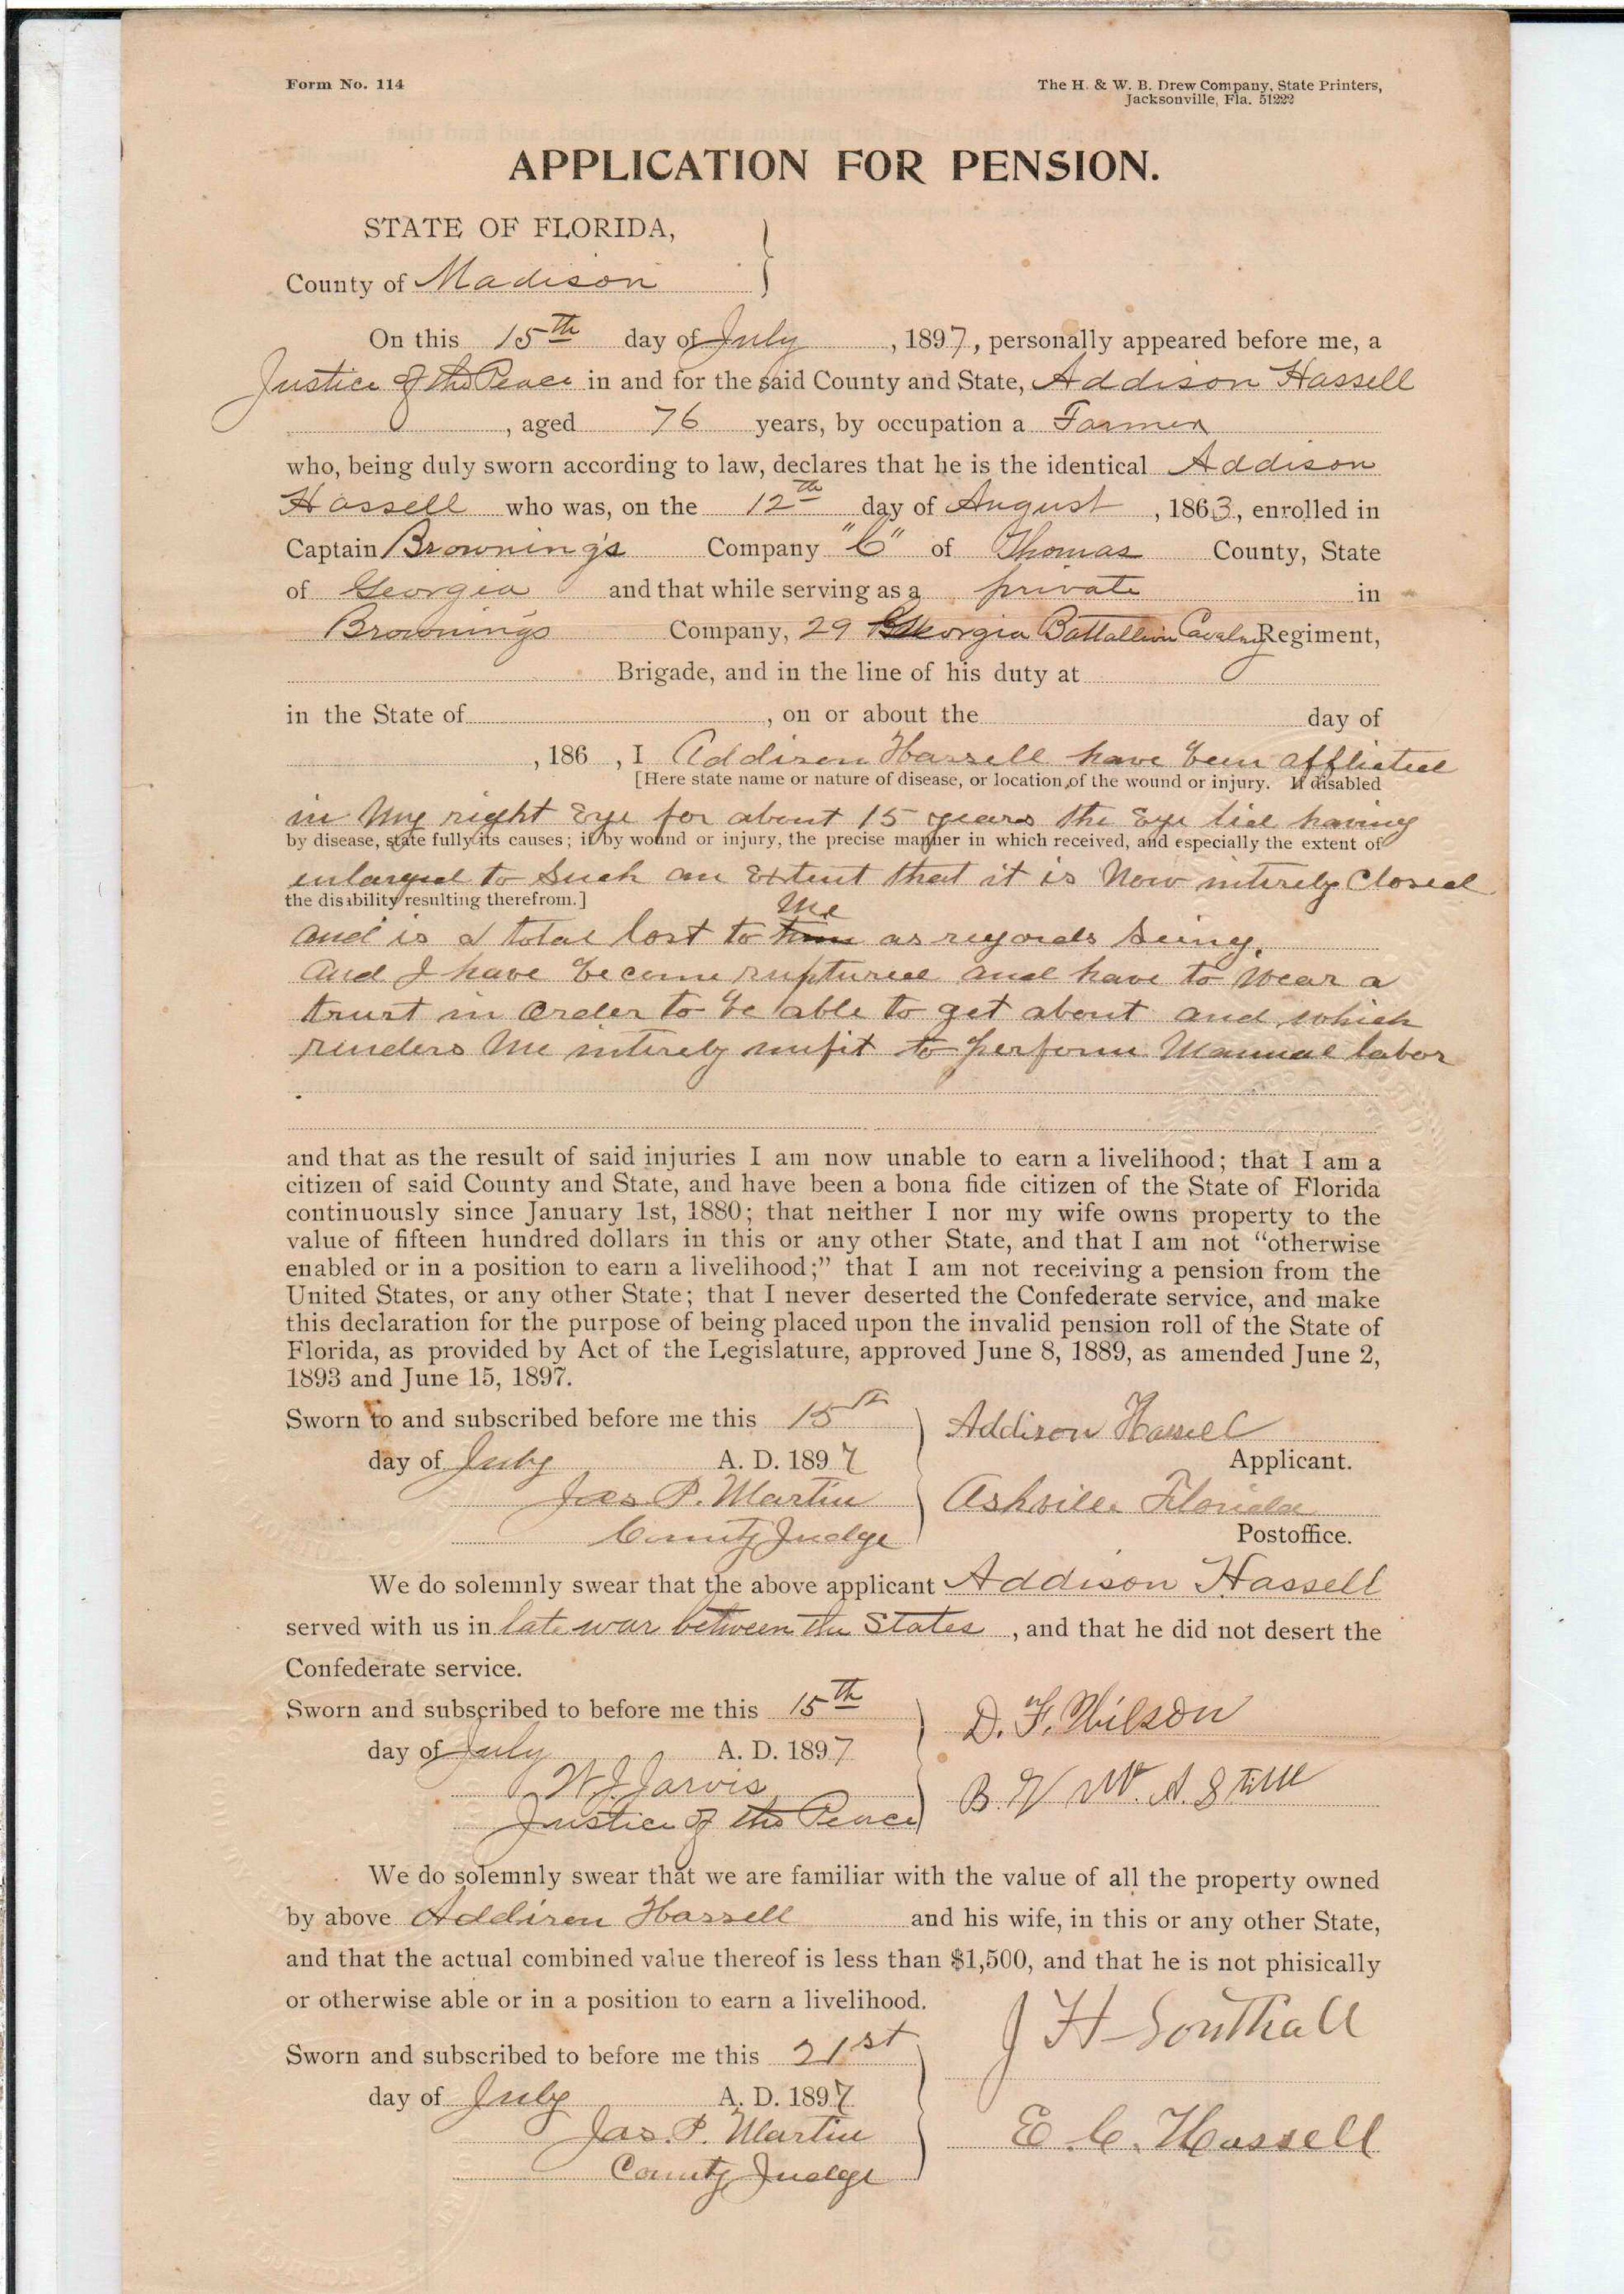 Form No. 114
The H. & W. B. Drew Company, State Printers,
Jacksonville, Fla. 51222
APPLICATION FOR PENSION.
STATE OF FLORIDA,
County of Madison
On this 15th day of July , 1897, personally appeared before me, a
Justice of the Peace in and for the said County and State, Addison Hassell
, aged 76 years, by occupation a Farmer
who, being duly sworn according to law, declares that he is the identical Addison
Hassell who was, on the 12th day of August , 1863, enrolled in
Captain Browning's Company "C" of Thomas County, State
of Georgia and that while serving as a private in
Browning's Company, 29 Georgia Battallion Cavalry Regiment,
Brigade, and in the line of his duty at
in the State of , on or about the day of
, 186 , I Addison Hassell have been afflicted
[Here state name or nature of disease, or location of the wound or injury. If disabled
in My right Eye for about 15 years the Eye lid having
by disease, state fully its causes; if by wound or injury, the precise manner in which received, and especially the extent of
enlarged to Such an Extent that it is Now intirely Closed
the disability resulting therefrom.]
and is a total lost to Me as regards seing,
and I have become ruptured and have to wear a
trust in order to be able to get about and which
renders Me intirely unfit to perform Manual labor
and that as the result of said injuries I am now unable to earn a livelihood; that I am a
citizen of said County and State, and have been a bona fide citizen of the State of Florida
continuously since January 1st, 1880; that neither I nor my wife owns property to the
value of fifteen hundred dollars in this or any other State, and that I am not "otherwise
enabled or in a position to earn a livelihood;" that I am not receiving a pension from the
United States, or any other State; that I never deserted the Confederate service, and make
this declaration for the purpose of being placed upon the invalid pension roll of the State of
Florida, as provided by Act of the Legislature, approved June 8, 1889, as amended June 2,
1893 and June 15, 1897.
Sworn to and subscribed before me this 15th
Addison Hassell
day of July A. D. 1897
Applicant.
Jas P. Martin
Ashville Florida
County Judge
Postoffice.
We do solemnly swear that the above applicant Addison Hassell
served with us in late war between the States , and that he did not desert the
Confederate service.
Sworn and subscribed to before me this 15th
D. F. Wilson
day of July A. D. 1897
W. J. Jarvis
B. W. A.
Justice of the Peace
We do solemnly swear that we are familiar with the value of all the property owned
by above Addison Hassell and his wife, in this or any other State,
and that the actual combined value thereof is less than $1,500, and that he is not phisically
or otherwise able or in a position to earn a livelihood.
J H Southall
Sworn and subscribed to before me this 21st
day of July A. D. 1897
Jas. P. Martin
E. C. Hassell
County Judge